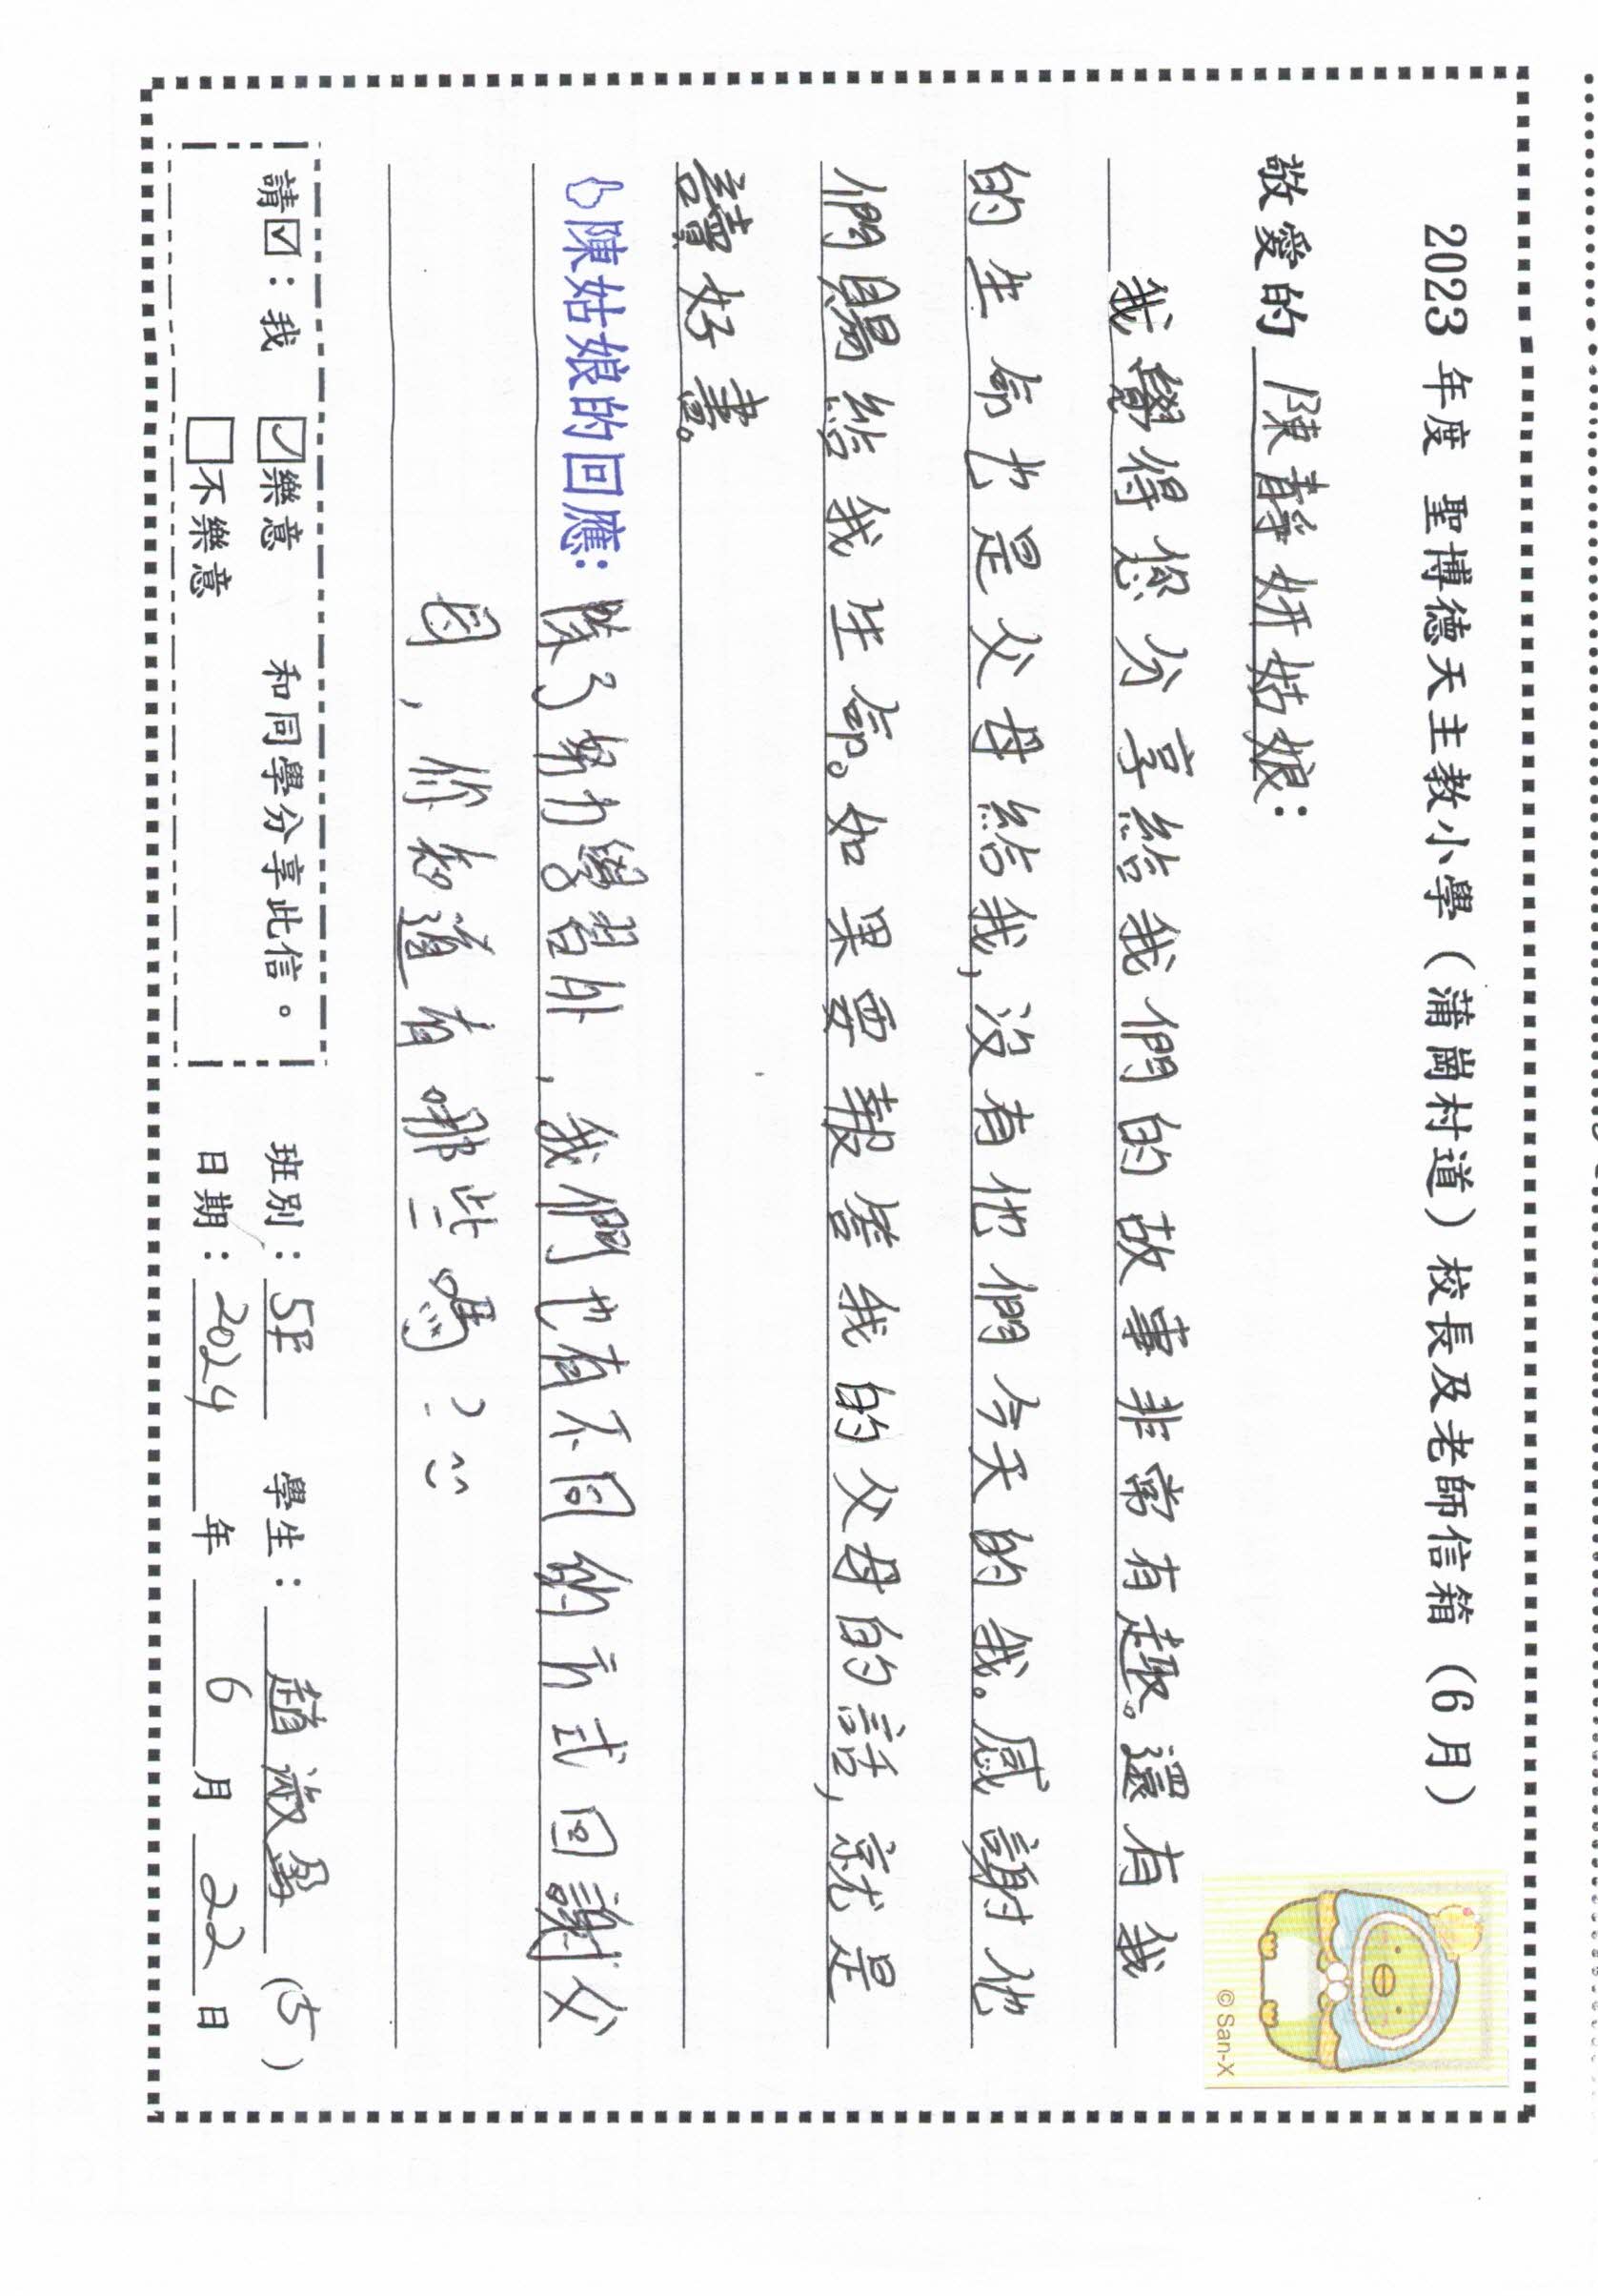 2023 年度 聖博德天主教小學（蒲崗村道）校長及老師信箱（6月）
敬愛的 陳靜妍姑娘：
我覺得您分享給我們的故事非常有趣。還有我
的生命也是父母給我,沒有他們今天的我。感謝他
們賜給我生命。如果要報答我的父母的話,就是
讀好書。
陳姑娘的回應: 除了努力學習外，我們也有不同的方式回謝父
母，你知道有哪些嗎？
請☑：我 ☑樂意 和同學分享此信。
□不樂意
班別：5F 學生：趙 盈 (5)
日期：2024 年 6 月 22 日
© San-X